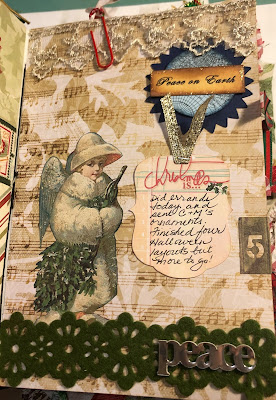 Peace on Earth
Christmas
IS IN
did errands
today and
sent C+M's
ornaments.
Finished four
Halloween
layouts but
more to go!
5
peace